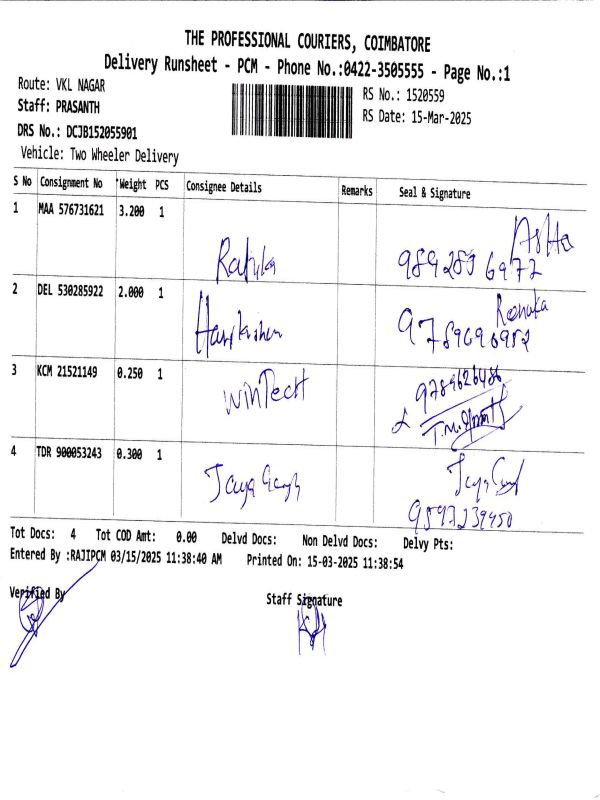 THE PROFESSIONAL COURIERS, COIMBATORE
Delivery Runsheet - PCM - Phone No.:0422-3505555 - Page No.:1
Route: VKL NAGAR
RS No.: 1520559
Staff: PRASANTH
RS Date: 15-Mar-2025
DRS No.: DCJB152055901
Vehicle: Two Wheeler Delivery
S No Consignment No Weight PCS Consignee Details Remarks Seal & Signature
1 MAA 576731621 3.200 1
2 DEL 530285922 2.000 1
Renuka
3 KCM 21521149 0.250 1
WinTech 9789626486
4 TDR 900053243 0.300 1
9597239450
Tot Docs: 4 Tot COD Amt: 0.00 Delvd Docs: Non Delvd Docs: Delvy Pts:
Entered By :RAJIPCM 03/15/2025 11:38:40 AM Printed On: 15-03-2025 11:38:54
Verified By
Staff Signature